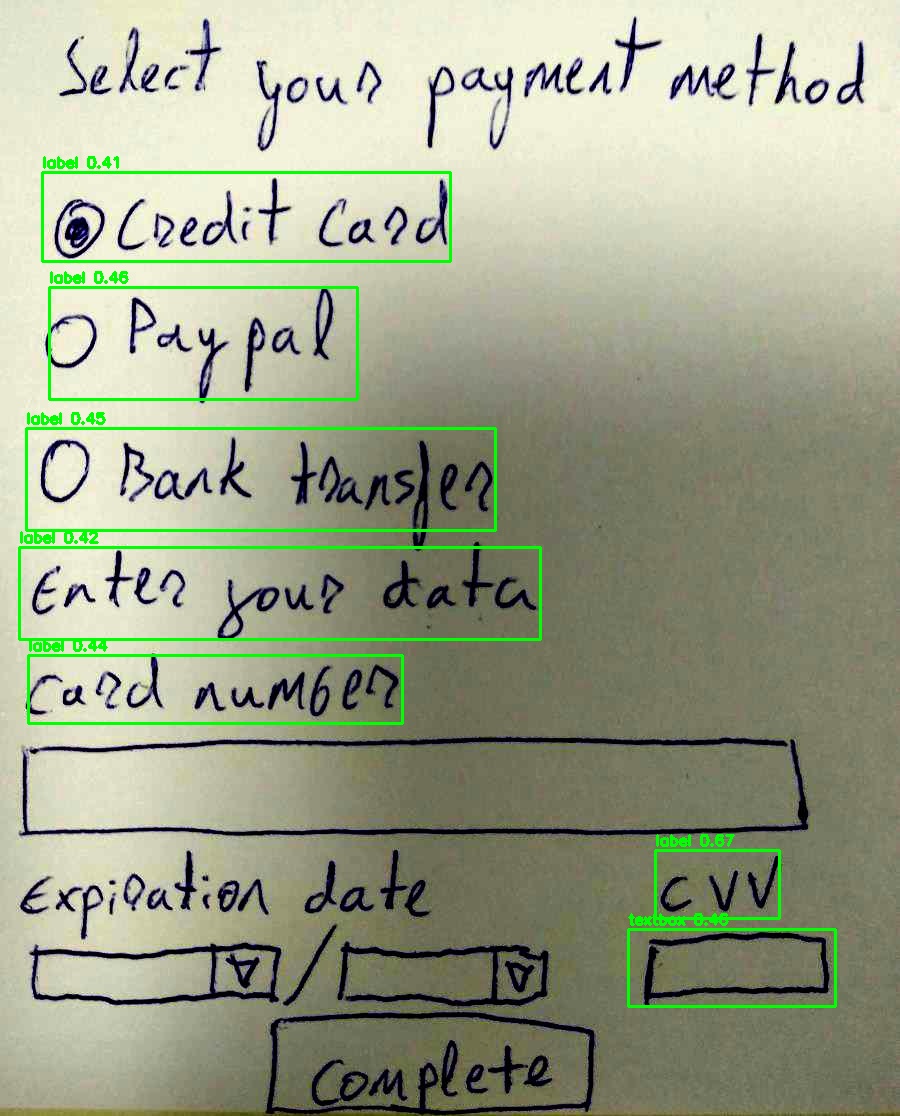 Select your payment method
label 0.41
Credit Card
label 0.46
Paypal
label 0.45
Bank transfer
label 0.42
Enter your data
label 0.44
Card number
label 0.67
Expiration date CVV
textbox 0.46
/
Complete